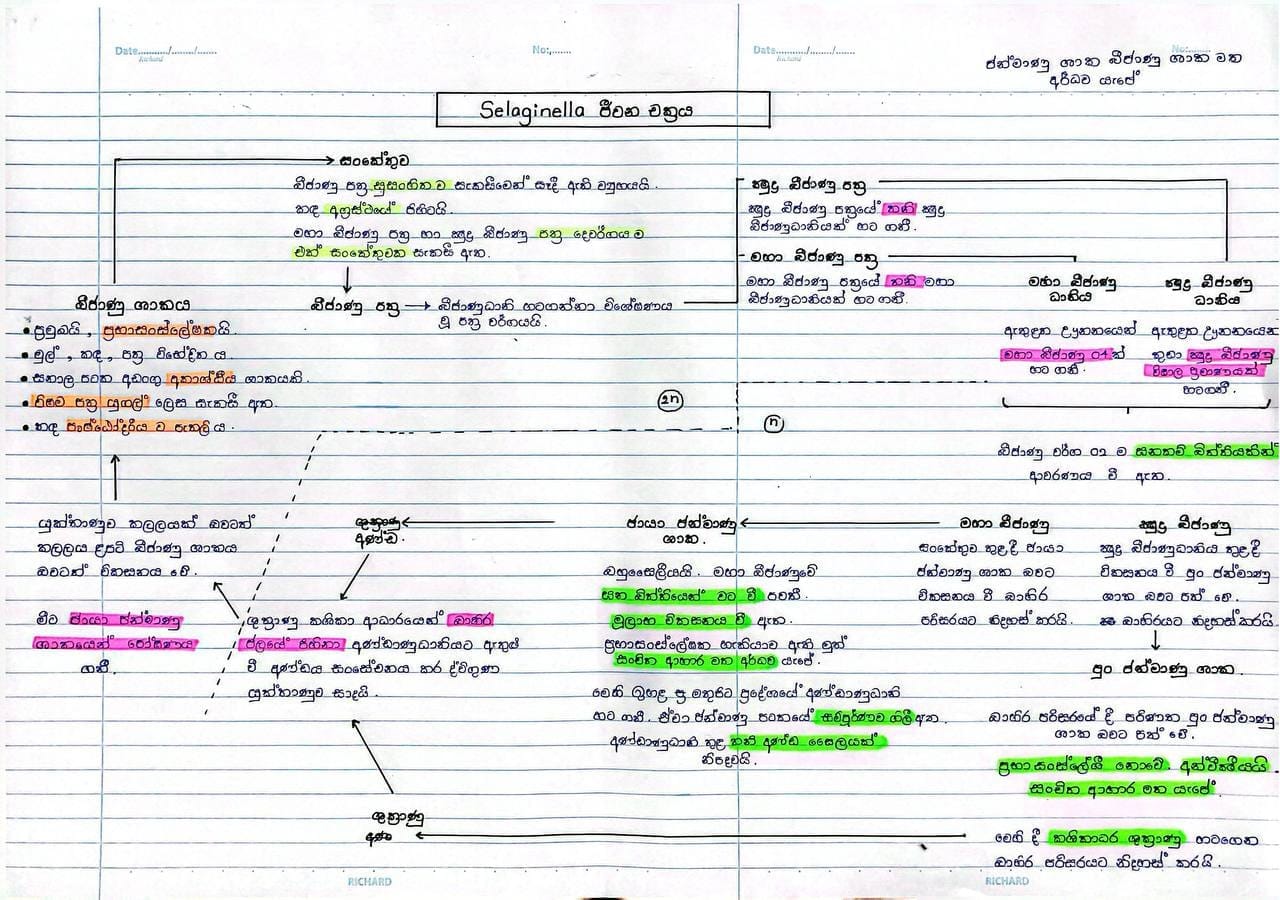 Date........../......../......
Richard
No:.......
Date........../......../......
Richard
No:.......
ජන්මාණු ශාක බීජාණු ශාක මත
අර්ධව යැපේ
Selaginella ජීවන චක්‍රය
සංකේතුව
බීජාණු පත්‍ර සුසංහිත ව සැකසීමෙන් සෑදී ඇති ව්‍යුහයයි.
කඳ අග්‍රස්ථයේ පිහිටයි.
මහා බීජාණු පත්‍ර හා ක්‍ෂුද්‍ර බීජාණු පත්‍ර දෙවර්ගය ම
එක් සංකේතුවක සැකසී ඇත.
ක්‍ෂුද්‍ර බීජාණු පත්‍ර
ක්‍ෂුද්‍ර බීජාණු පත්‍රයේ තනි ක්‍ෂුද්‍ර
බීජාණුධානියක් හට ගනී.
මහා බීජාණු පත්‍ර
මහා බීජාණු පත්‍රයේ තනි මහා
බීජාණුධානියක් හට ගනී.
මහා බීජාණු
ධානිය
ක්‍ෂුද්‍ර බීජාණු
ධානිය
බීජාණු ශාකය
බීජාණු පත්‍ර → බීජාණුධානි හටගන්නා විශේෂණය
වූ පත්‍ර වර්ගයයි.
• ප්‍රමුඛයි, ප්‍රභාසංස්ලේෂකයි.
• මුල්, කඳ, පත්‍ර විභේදිත ය.
• සනාල පටක අඩංගු අකාශ්ඨීය ශාකයකි.
• විෂම පත්‍ර යුගල් ලෙස සැකසී ඇත.
• කඳ පෘෂ්ඨෝදරීය ව පැතලි ය.
ඇතුළත ඌනනයෙන්
මහා බීජාණු 04ක්
හට ගනී.
ඇතුළත ඌනනයෙන්
කුඩා ක්‍ෂුද්‍ර බීජාණු
විශාල ප්‍රමාණයක්
හටගනී.
2n
n
බීජාණු වර්ග 02 ම ඝනකම් බිත්තියකින්
ආවරණය වී ඇත.
යුක්තාණුව කලලයක් බවටත්
කලලය ළපටි බීජාණු ශාකය
බවටත් විකසනය වේ.
ශුක්‍රාණු
අණ්ඩ.
ජායා ජන්මාණු
ශාක.
මහා බීජාණු
ක්‍ෂුද්‍ර බීජාණු
බහුසෛලීයයි. මහා බීජාණුවේ
ඝන බිත්තියෙන් වට වී පවතී.
මූලාභ විකසනය වී ඇත.
ප්‍රභාසංස්ලේශක හැකියාව ඇති මුත්
සංචිත ආහාර මත අර්ධව යැපේ.
සංකේතුව තුළ දී ජායා
ජන්මාණු ශාක බවට
විකසනය වී බාහිර
පරිසරයට නිදහස් කරයි.
ක්‍ෂුද්‍ර බීජාණුධානිය තුළ දී
විකසනය වී පුං ජන්මාණු
ශාක බවට පත් වේ.
බාහිරයට නිදහස් කරයි.
මීට ජායා ජන්මාණු
ශාකයෙන් පෝෂණය
ගනී.
ශුක්‍රාණු කශිකා ආධාරයෙන් බාහිර
ජලයේ පිහිනා අණ්ඩාණුධානියට ඇතුළු
වී අණ්ඩය සංසේචනය කර ද්විගුණ
යුක්තාණුව සාදයි.
මතුපිට ප්‍රදේශයේ අණ්ඩාණුධානි
හට ගනී. ඒවා ජන්මාණු පටකයේ සම්පූර්ණව ගිලී ඇත.
අණ්ඩාණුධානි තුළ තනි අණ්ඩ සෛලයක්
නිපදවයි.
පුං ජන්මාණු ශාක.
බාහිර පරිසරයේ දී පරිණත පුං ජන්මාණු
ශාක බවට පත් වේ.
ප්‍රභාසංස්ලේශී නොවේ. අන්වීක්ෂීයයි.
සංචිත ආහාර මත යැපේ.
ශුක්‍රාණු
මෙහි දී කශිකාධර ශුක්‍රාණු හටගෙන
බාහිර පරිසරයට නිදහස් කරයි.
RICHARD
RICHARD